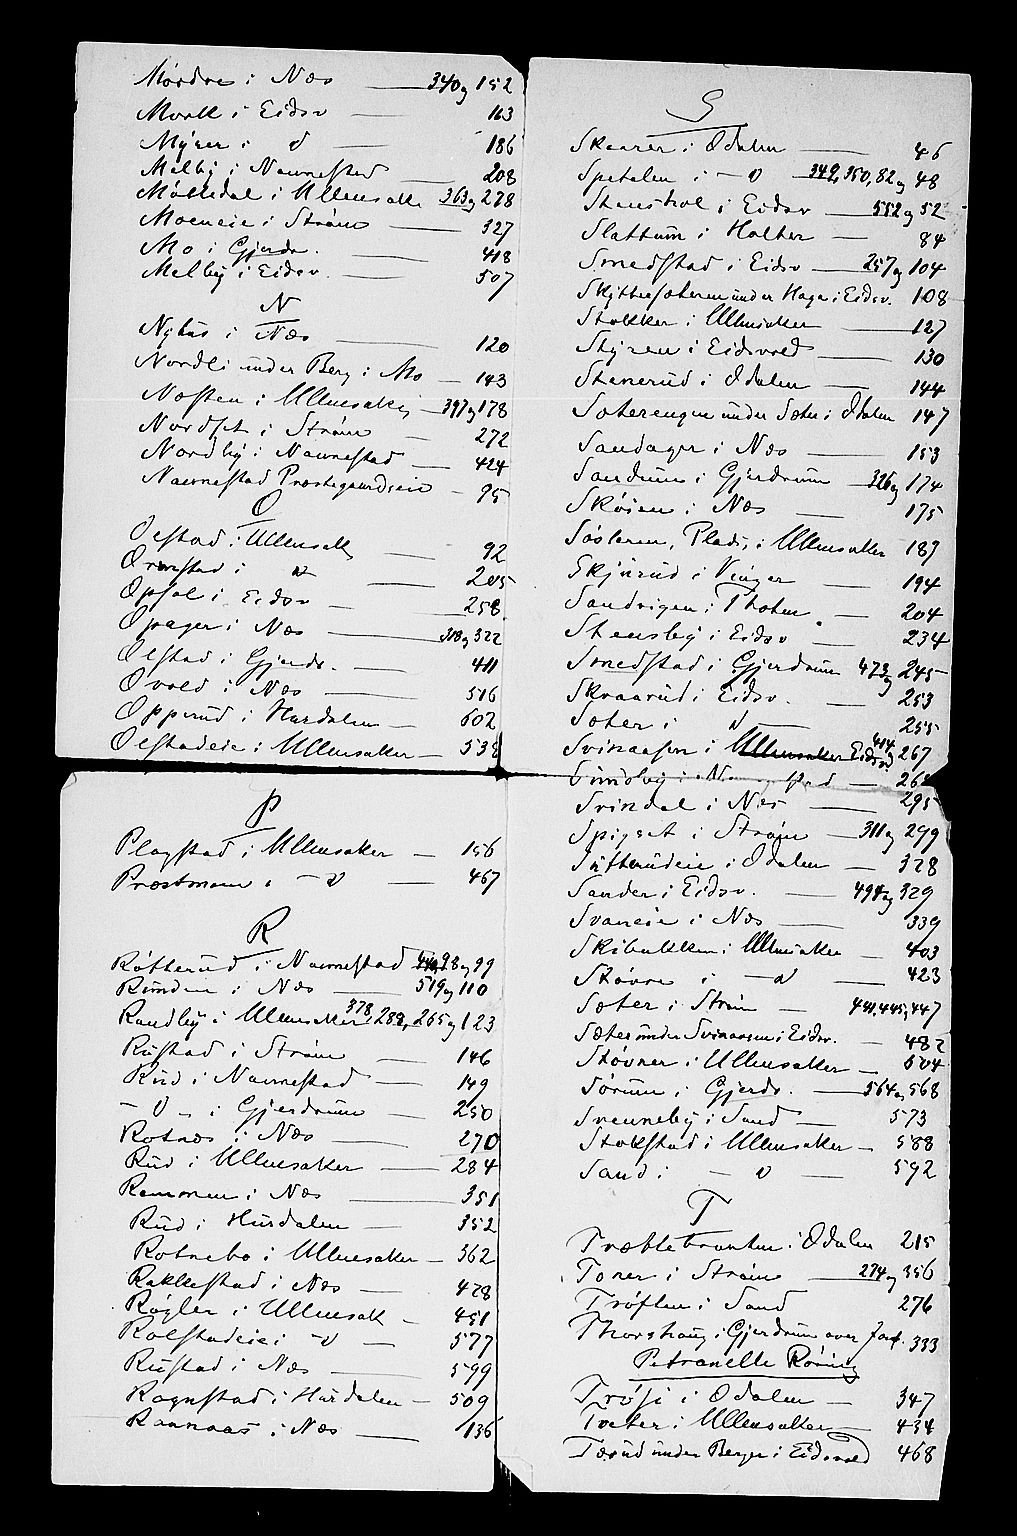 Mørdre i Næs — 340 og 152
Mork i Eidsv — 163
Myrer i d — 186
Melby i Nannestad — 208
Møltedal i Ullensaker 363 og 278
Moeneie i Strøm — 327
Mo i Gjerdr. — 418
Melby i Eidsv. — 507
N
Nyhus i Næs — 120
Nordli under Berg i Mo — 143
Nosten i Ullensaker — 397 og 178
Nordset i Strøm — 272
Nordby i Nannestad — 424
Nannestad Præstegaardseie — 95
O
Olstad i Ullensak — 92
Ormstad i d — 205
Opsal i Eidsv — 258
Opager i Næs — 318 og 322
Olstad i Gjerdr. — 411
Ovold i Næs — 516
Opperud i Hurdalen — 602
Olstadeie i Ullensaker — 538
P
Plogstad i Ullensaker — 156
Præstmoen i — d — 467
R
Rotterud i Nannestad 98 og 99
Runden i Næs — 519 og 110
Randby i Ullensaker 378, 288, 265 og 123
Rustad i Strøm — 146
Rud i Nannestad — 149
— d — i Gjerdrum — 250
Rotnæs i Næs — 270
Rud i Ullensaker — 284
Rommen i Næs — 351
Rud i Hurdalen — 352
Rotnebo i Ullensaker — 362
Rakkestad i Næs — 428
Røgler i Ullensak — 451
Rolstadeie i — d — 577
Rustad i Næs — 599
Rognstad i Hurdalen — 509
Raanaas i Næs — 136
S
Skaarer i Odalen — 46
Spetalen i — d 349, 350, 82 og 48
Stensrol i Eidsv — 552 og 52
Slattum i Holter — 84
Smedstad i Eidsv — 257 og 104
Skyttesæteren under Haga i Eidsv. 108
Stokker i Ullensaker — 127
Styren i Eidsvold — 130
Stenerud i Odalen — 144
Soterengen under Soter i Odalen 147
Sandager i Næs — 153
Sandum i Gjerdrum — 326 og 174
Skøien i Næs — 175
Plads, i Ullensaker 189
Skjurud i Vinger — 194
Sandvigen i Thoten — 204
Stensby i Eidsv — 234
Smedstad i Gjerdrum 473 og 245
Skraarud i Eidsv. — 253
Soter i d — 255
Svinaasen i Ullensaker Eidsvd. 414 og 267
Sundby i Nannestad — 268
Svindal i Næs — 295
Spigset i Strøm — 311 og 299
i Odalen — 328
Sander i Eidsv. — 494 og 329
Svaneie i Næs — 339
Skibakken i Ullensaker — 403
Støvre i — d — 423
Soter i Strøm — 441, 445, 447
Sæter under Svinaasen i Eidsv. — 482
Støvner i Ullensaker — 504
Sørum i Gjerdr. — 564 og 568
Svenneby i Sand — 573
Stokstad i Ullensaker — 588
Sand i — d — 592
T
Trættebranten i Odalen 215
Toner i Strøm — 274 og 356
Trøften i Sand 276
Thorshaug i Gjerdrum over Jac. 333
Petronelle Røning
Trøsi i Odalen — 347
Tveter i Ullensaker — 434
Tærud under Berger i Eidsvold 468